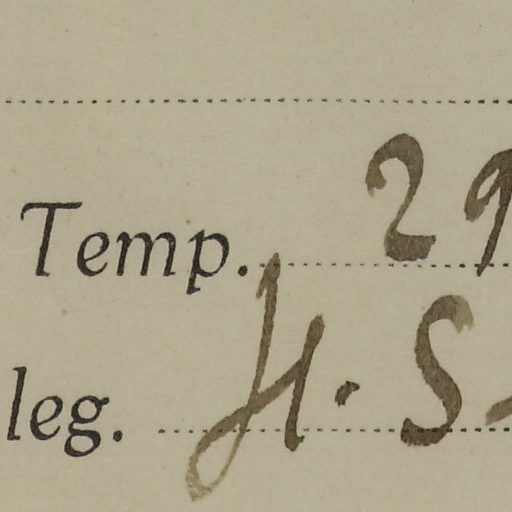 Temp. 29
leg. H. S